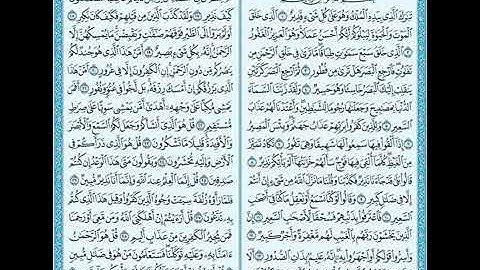 تَبَٰرَكَ ٱلَّذِي بِيَدِهِ ٱلْمُلْكُ وَهُوَ عَلَىٰ كُلِّ شَيْءٍ قَدِيرٌ ١ ٱلَّذِي خَلَقَ
ٱلْمَوْتَ وَٱلْحَيَوٰةَ لِيَبْلُوَكُمْ أَيُّكُمْ أَحْسَنُ عَمَلًا وَهُوَ ٱلْعَزِيزُ ٱلْغَفُورُ ٢
ٱلَّذِي خَلَقَ سَبْعَ سَمَٰوَٰتٍ طِبَاقًا مَّا تَرَىٰ فِي خَلْقِ ٱلرَّحْمَٰنِ مِن
تَفَٰوُتٍ فَٱرْجِعِ ٱلْبَصَرَ هَلْ تَرَىٰ مِن فُطُورٍ ٣ ثُمَّ ٱرْجِعِ ٱلْبَصَرَ كَرَّتَيْنِ
يَنقَلِبْ إِلَيْكَ ٱلْبَصَرُ خَاسِئًا وَهُوَ حَسِيرٌ ٤ وَلَقَدْ زَيَّنَّا ٱلسَّمَآءَ
ٱلدُّنْيَا بِمَصَٰبِيحَ وَجَعَلْنَٰهَا رُجُومًا لِّلشَّيَٰطِينِ وَأَعْتَدْنَا لَهُمْ عَذَابَ
ٱلسَّعِيرِ ٥ وَلِلَّذِينَ كَفَرُوا۟ بِرَبِّهِمْ عَذَابُ جَهَنَّمَ وَبِئْسَ ٱلْمَصِيرُ
٦ إِذَآ أُلْقُوا۟ فِيهَا سَمِعُوا۟ لَهَا شَهِيقًا وَهِيَ تَفُورُ ٧ تَكَادُ تَمَيَّزُ
مِنَ ٱلْغَيْظِ كُلَّمَآ أُلْقِيَ فِيهَا فَوْجٌ سَأَلَهُمْ خَزَنَتُهَآ أَلَمْ يَأْتِكُمْ نَذِيرٌ ٨
قَالُوا۟ بَلَىٰ قَدْ جَآءَنَا نَذِيرٌ فَكَذَّبْنَا وَقُلْنَا مَا نَزَّلَ ٱللَّهُ مِن شَيْءٍ إِنْ أَنتُمْ
إِلَّا فِي ضَلَٰلٍ كَبِيرٍ ٩ وَقَالُوا۟ لَوْ كُنَّا نَسْمَعُ أَوْ نَعْقِلُ مَا كُنَّا فِيٓ أَصْحَٰبِ
ٱلسَّعِيرِ ١٠ فَٱعْتَرَفُوا۟ بِذَنۢبِهِمْ فَسُحْقًا لِّأَصْحَٰبِ ٱلسَّعِيرِ ١١ إِنَّ
ٱلَّذِينَ يَخْشَوْنَ رَبَّهُم بِٱلْغَيْبِ لَهُم مَّغْفِرَةٌ وَأَجْرٌ كَبِيرٌ ١٢
وَأَسِرُّوا۟ قَوْلَكُمْ أَوِ ٱجْهَرُوا۟ بِهِۦٓ إِنَّهُۥ عَلِيمٌۢ بِذَاتِ ٱلصُّدُورِ ١٣ أَلَا
كَيْفَ نَذِيرِ ١٧ وَلَقَدْ كَذَّبَ ٱلَّذِينَ مِن قَبْلِهِمْ فَكَيْفَ كَانَ نَكِيرِ ١٨
أَوَلَمْ يَرَوْا۟ إِلَى ٱلطَّيْرِ فَوْقَهُمْ صَٰٓفَّٰتٍ وَيَقْبِضْنَ مَا يُمْسِكُهُنَّ إِلَّا
ٱلرَّحْمَٰنُ إِنَّهُۥ بِكُلِّ شَيْءٍۭ بَصِيرٌ ١٩ أَمَّنْ هَٰذَا ٱلَّذِي هُوَ جُندٌ لَّكُمْ
يَنصُرُكُم مِّن دُونِ ٱلرَّحْمَٰنِ إِنِ ٱلْكَٰفِرُونَ إِلَّا فِي غُرُورٍ ٢٠ أَمَّنْ
هَٰذَا ٱلَّذِي يَرْزُقُكُمْ إِنْ أَمْسَكَ رِزْقَهُۥ بَل لَّجُّوا۟ فِي عُتُوٍّ وَنُفُورٍ ٢١ أَفَمَن
يَمْشِي مُكِبًّا عَلَىٰ وَجْهِهِۦٓ أَهْدَىٰٓ أَمَّن يَمْشِي سَوِيًّا عَلَىٰ صِرَٰطٍ
مُّسْتَقِيمٍ ٢٢ قُلْ هُوَ ٱلَّذِيٓ أَنشَأَكُمْ وَجَعَلَ لَكُمُ ٱلسَّمْعَ وَٱلْأَبْصَٰرَ
وَٱلْأَفْـِٔدَةَ قَلِيلًا مَّا تَشْكُرُونَ ٢٣ قُلْ هُوَ ٱلَّذِي ذَرَأَكُمْ فِي
ٱلْأَرْضِ وَإِلَيْهِ تُحْشَرُونَ ٢٤ وَيَقُولُونَ مَتَىٰ هَٰذَا ٱلْوَعْدُ إِن كُنتُمْ
صَٰدِقِينَ ٢٥ قُلْ إِنَّمَا ٱلْعِلْمُ عِندَ ٱللَّهِ وَإِنَّمَآ أَنَا۠ نَذِيرٌ مُّبِينٌ ٢٦
فَلَمَّا رَأَوْهُ زُلْفَةً سِيٓـَٔتْ وُجُوهُ ٱلَّذِينَ كَفَرُوا۟ وَقِيلَ هَٰذَا ٱلَّذِي كُنتُم
بِهِۦ تَدَّعُونَ ٢٧ قُلْ أَرَءَيْتُمْ إِنْ أَهْلَكَنِيَ ٱللَّهُ وَمَن مَّعِيَ أَوْ رَحِمَنَا
فَمَن يُجِيرُ ٱلْكَٰفِرِينَ مِنْ عَذَابٍ أَلِيمٍ ٢٨ قُلْ هُوَ ٱلرَّحْمَٰنُ
ءَامَنَّا بِهِۦ وَعَلَيْهِ تَوَكَّلْنَا فَسَتَعْلَمُونَ مَنْ هُوَ فِي ضَلَٰلٍ مُّبِينٍ